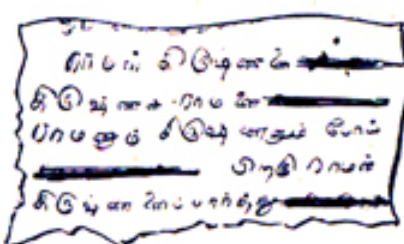 ராமன் கிருஷ்ணனை
கிருஷ்ணன் ராமனை
ராமனும் கிருஷ்ணனும் போய்
பிறகு ராமன்
கிருஷ்ணனைப் பார்த்து